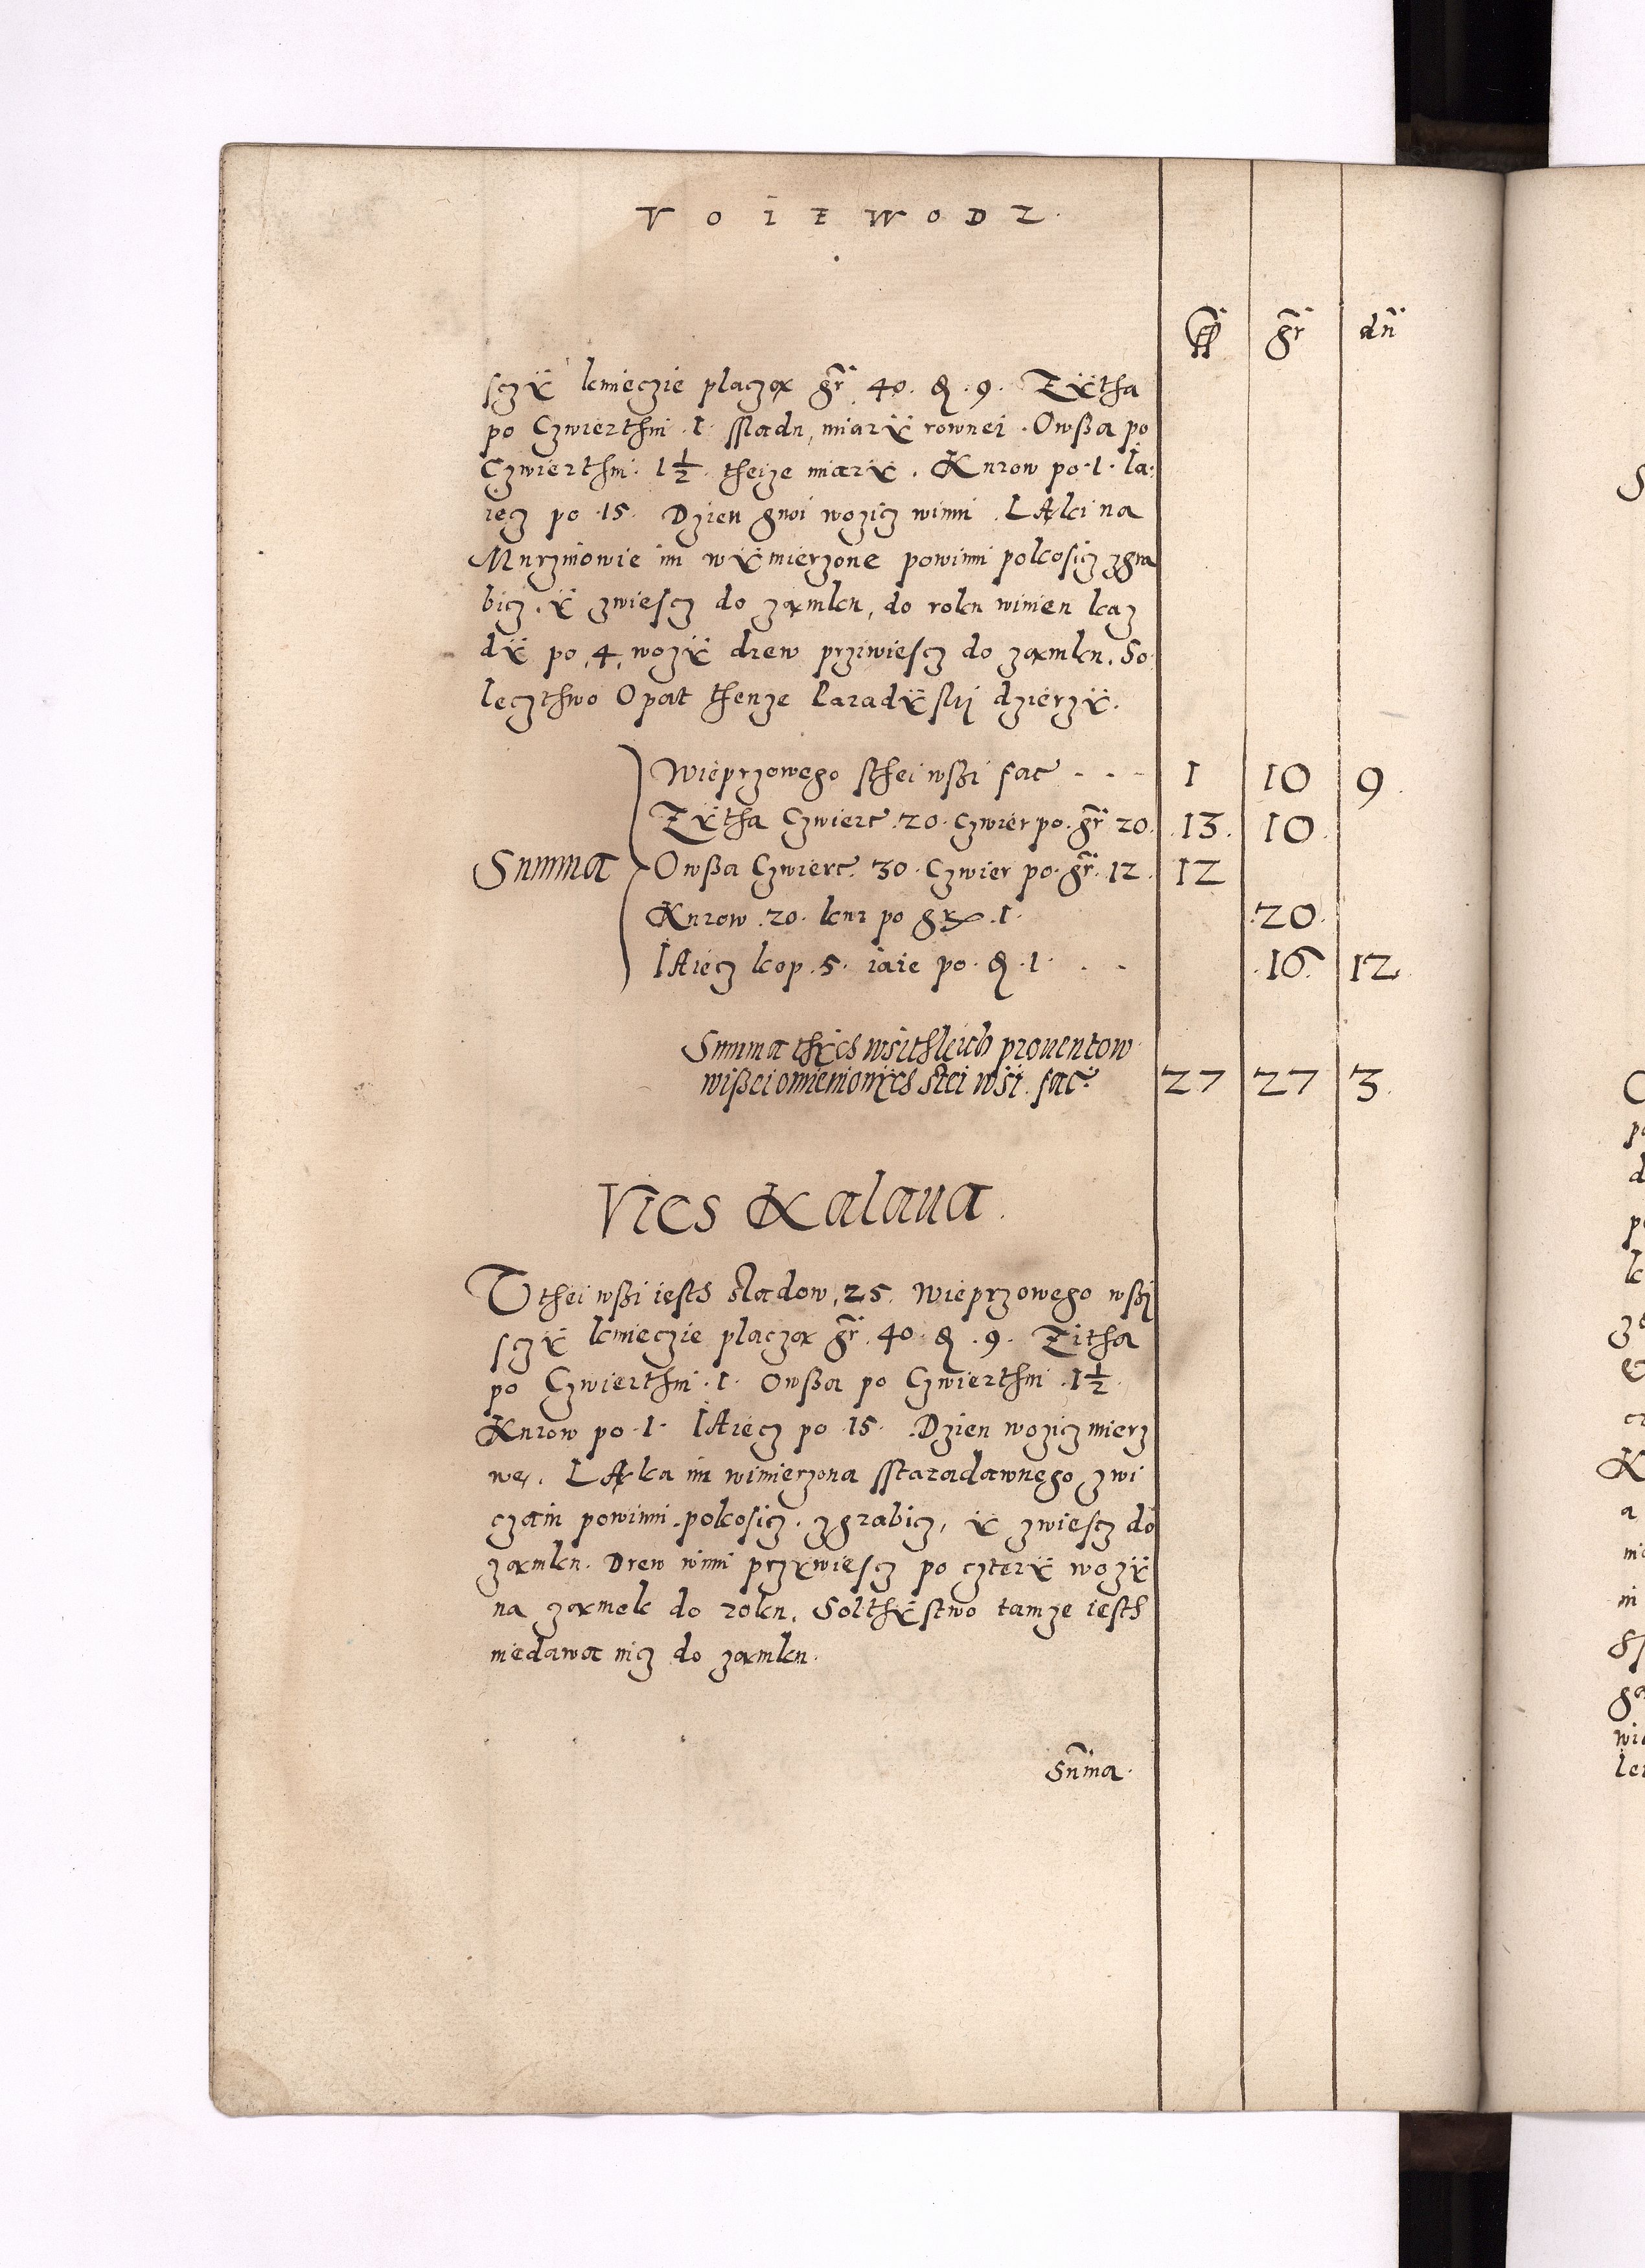 VOIEWODZ.
fl gr dn
sczÿ kmieczie placzą gr. 40. d. 9. Zÿtha
po Czwierthni .1. sladu, miarÿ rownei. Owßa po
Czwierthni. 1 1/2. theize miarÿ. Kurow po .1. Ia.
iecz po .15. Dzien gnoi wozicz winni. LĄki na
Murzinowie im wÿmierzone powinni pokosicz zgra
bicz. ÿ zwiescz do zamku, do roku winien kaz
dÿ po .4. wozÿ drew przÿwiescz do zamku. So
lecztwo Opat thenze Laradÿski dzierzÿ.
Wieprzowego sthei wßi fac - - - 1 10 9.
Zÿtha Czwierc .20. czwier po. gr 20. 13. 10.
Summa Owßa Czwierc. 30. Czwier po. gr. 12. 12
Kurow .20. kur po gr .1. 20.
IAiecz kop .5. iaie po. d .1. . - .16. 12.
Summa thÿch wsithkich prouentow
wißei omienionÿch stei wsi. fac. 27 27 3.
Vies Kalaua.
Uthei wßi iesth sladow, 25. Wieprzowego wßi
sczÿ kmieczie placzą gr. 40. d. 9. Zitha
po Czwierthni .1. Owßa po Czwierthni .1 1/2.
Kurow po .1. IAiecz po .15. Dzien wozicz mierz
wę. LĄka im wimierzona sstaradawnego zwi
czain powinni pokosicz. zgrabicz, ÿ zwiescz do
zamku. Drew winni przÿwiescz po czterÿ wozÿ
na zamek do roku. Solthÿstwo tamze iesth
niedawa nicz do zamku.
Summa.